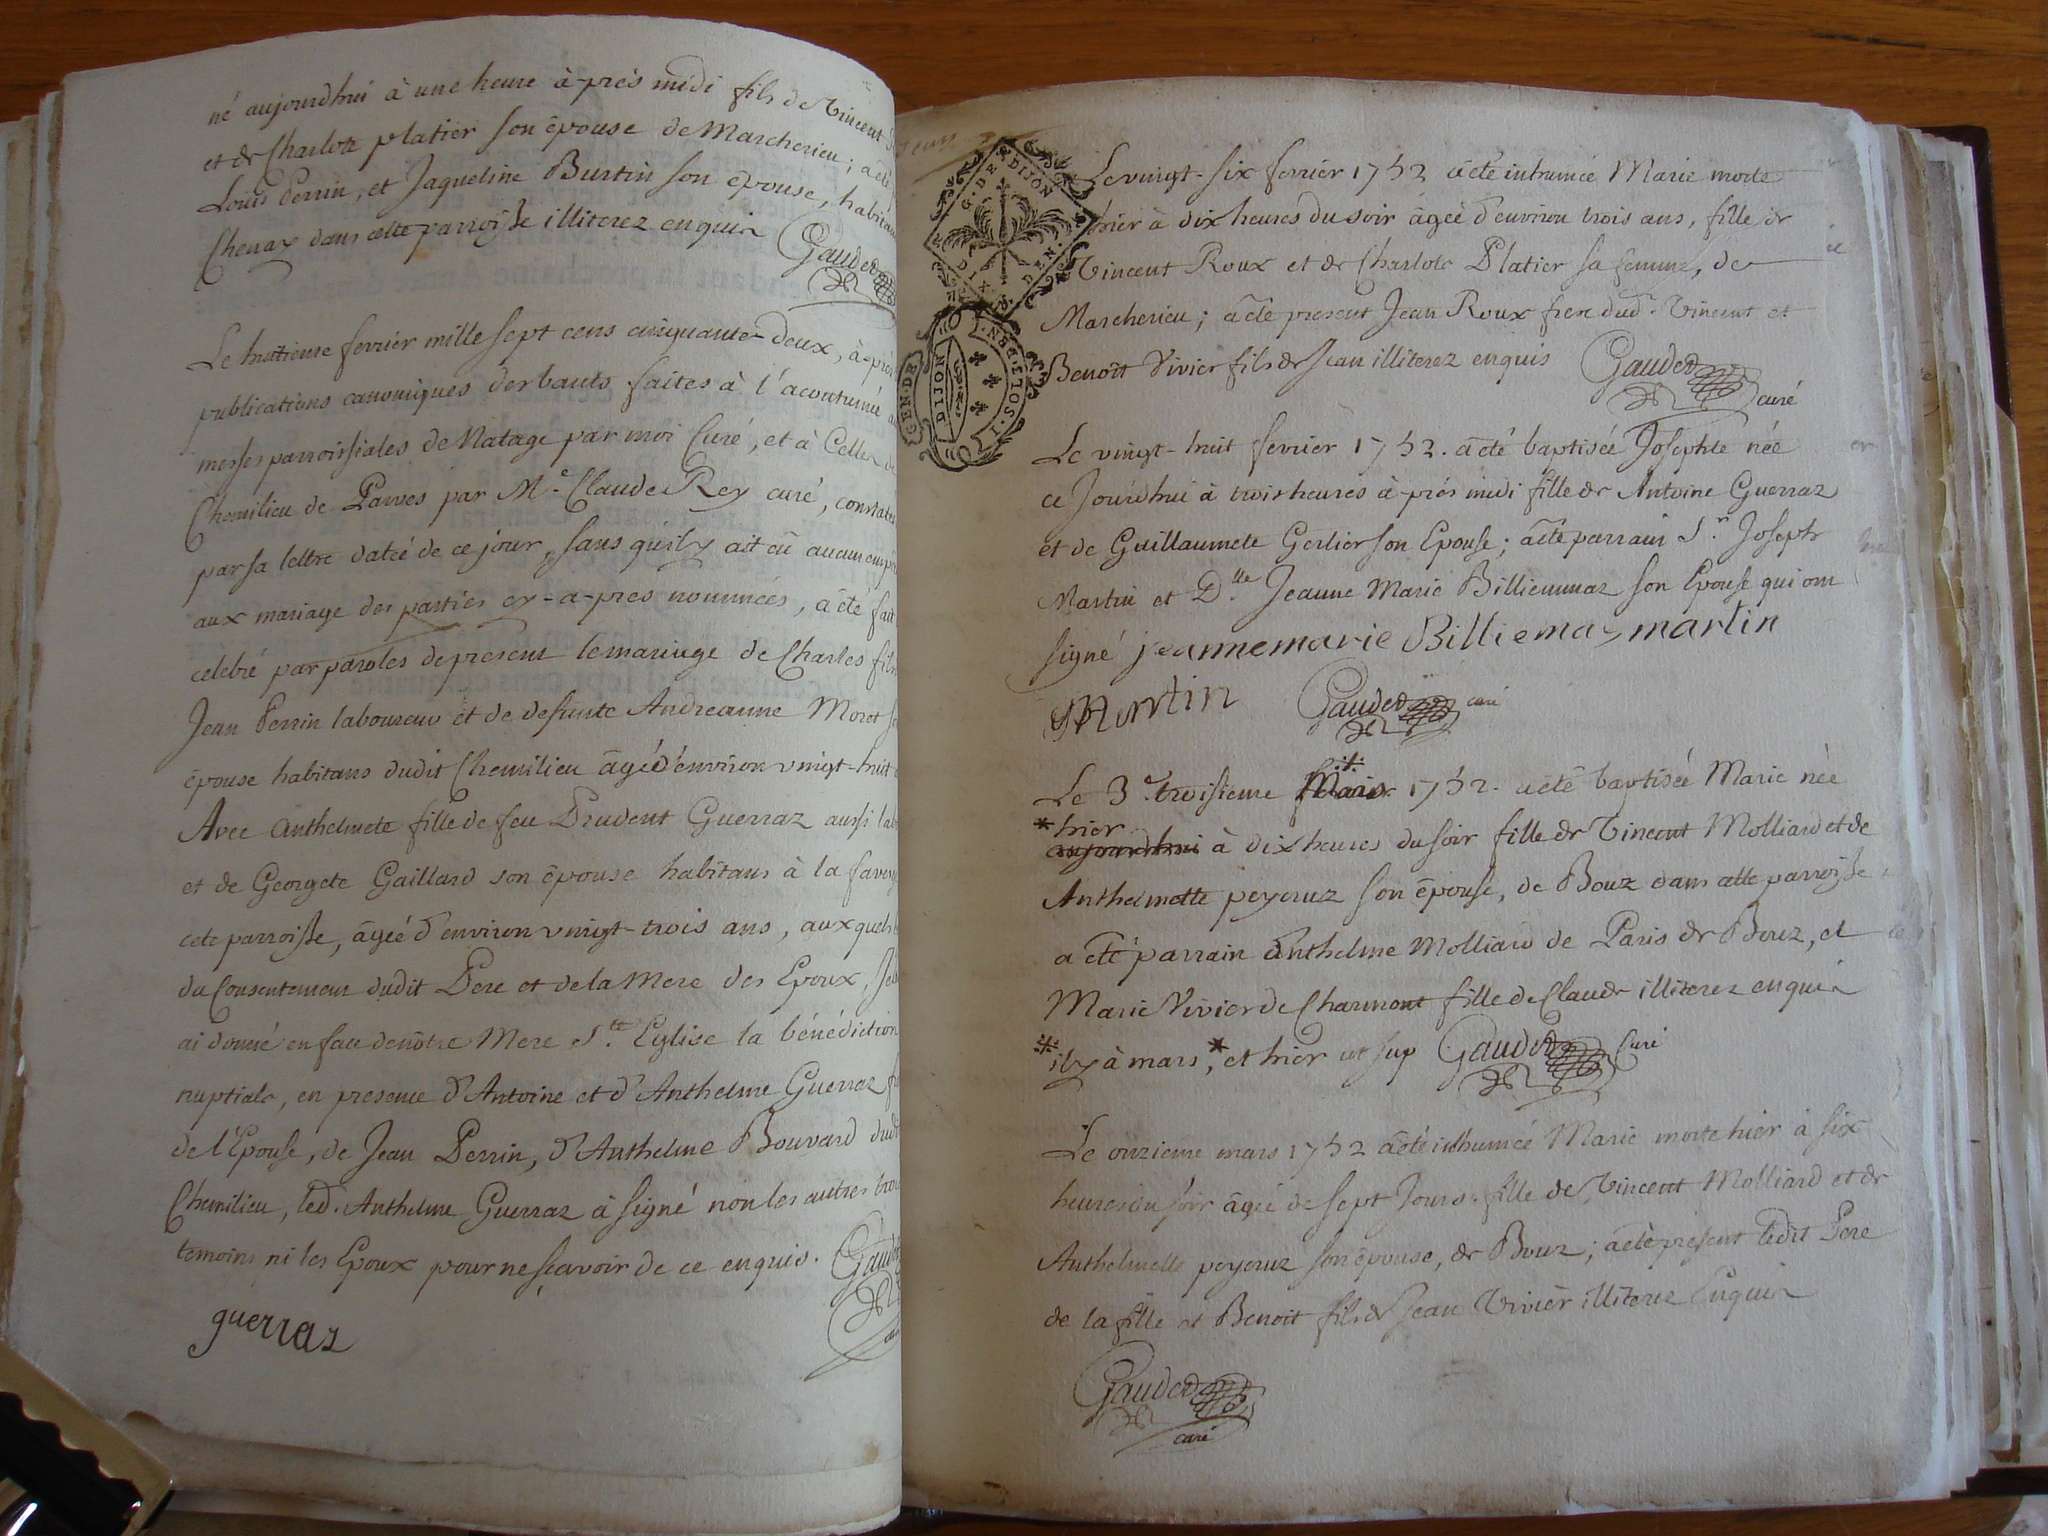 né aujourdhui à une heure à près midi fils de Vincent
et de Charlote platier son épouse de Marcherieu; a été
Louis Perrin, et Jaqueline Burtin son épouse, habitans
Chenax dans cette parroisse illiterez enquis Gauded
Le huitieme fevrier mille sept cens cinquante deux, à près
publications canoniques des bants faites à l'acoutumé
messes parroissiales de Natage par moi Curé, et à Celles
Chemilieu de Parves par Mre Claude Rey curé, constatée
par sa lettre datée de ce jour, sans qu'il y ait eû aucun
aux mariage des parties cy-a-pres nommées, a été fait
celebré par paroles de present le mariage de Charles fils
Jean Perrin laboureur et de defunte Andreanne Moret
épouse habitans dudit Chemilieu âgé d'environ vingt-huit
Avec Anthelmete fille de feu Prudent Guerraz aussi
et de Georgete Gaillard son épouse habitans à la
cete parroisse, âgée d'environ vingt-trois ans, auxquels
du Consentement dudit Pere et de la Mere des Epoux, Je
ai donné en face de nôtre Mere Ste Eglise la bénédiction
nuptiale, en presence d'Antoine et d'Anthelme Guerraz
de l'Epouse, de Jean Perrin, d'Anthelme Bouvard dud
Chemilieu, led. Anthelme Guerraz à signé non les autres
temoins ni les Epoux pour ne sçavoir de ce enquis. Gauded
guerraz
G. DE DIJON
DIX DEN.
GEN. DE DIJON
Le vingt-six fevrier 1752 a été inhumée Marie morte
hier à dix heures du soir âgée d'environ trois ans, fille de
Vincent Roux et de Charlote Platier sa femme, de
Marcherieu; a été present Jean Roux frere dud. Vincent et
Benoît Vivier fils de Jean illiterez enquis Gauded
curé
Le vingt-huit fevrier 1752. a été baptisée Josephte née
ce Jourd'hui à trois heures à-prés midi fille de Antoine Guerraz
et de Guillaumete Gerlier son Epouse; a été parrain Sr. Joseph
Martin et Dlle Jeanne Marie Billiemmaz son Epouse qui ont
signé jeannemarie Billiemaz martin
Martin Gauded curé
Le 3e troisieme Mars 1752. a été baptisée Marie née
* hier
aujourdhui à dix heures du soir fille de Vincent Molliard et de
Anthelmette peyeruz son épouse, de Bouz dans cette parroisse
a été parrain Anthelme Molliard de Paris de Bouz, et
Marie Vivier de Charmont fille de Claude illiterez enquis
il y à mars, * et hier ut sup Gauded Curé
Le onzieme mars 1752 a été inhumée Marie morte hier à six
heures du soir âgée de sept Jours fille de Vincent Molliard et de
Anthelmette peyeruz son épouse, de Bouz; a été present ledit Pere
de la fille et Benoit fils de Jean Vivier illiterez Enquis
Gauded
curé